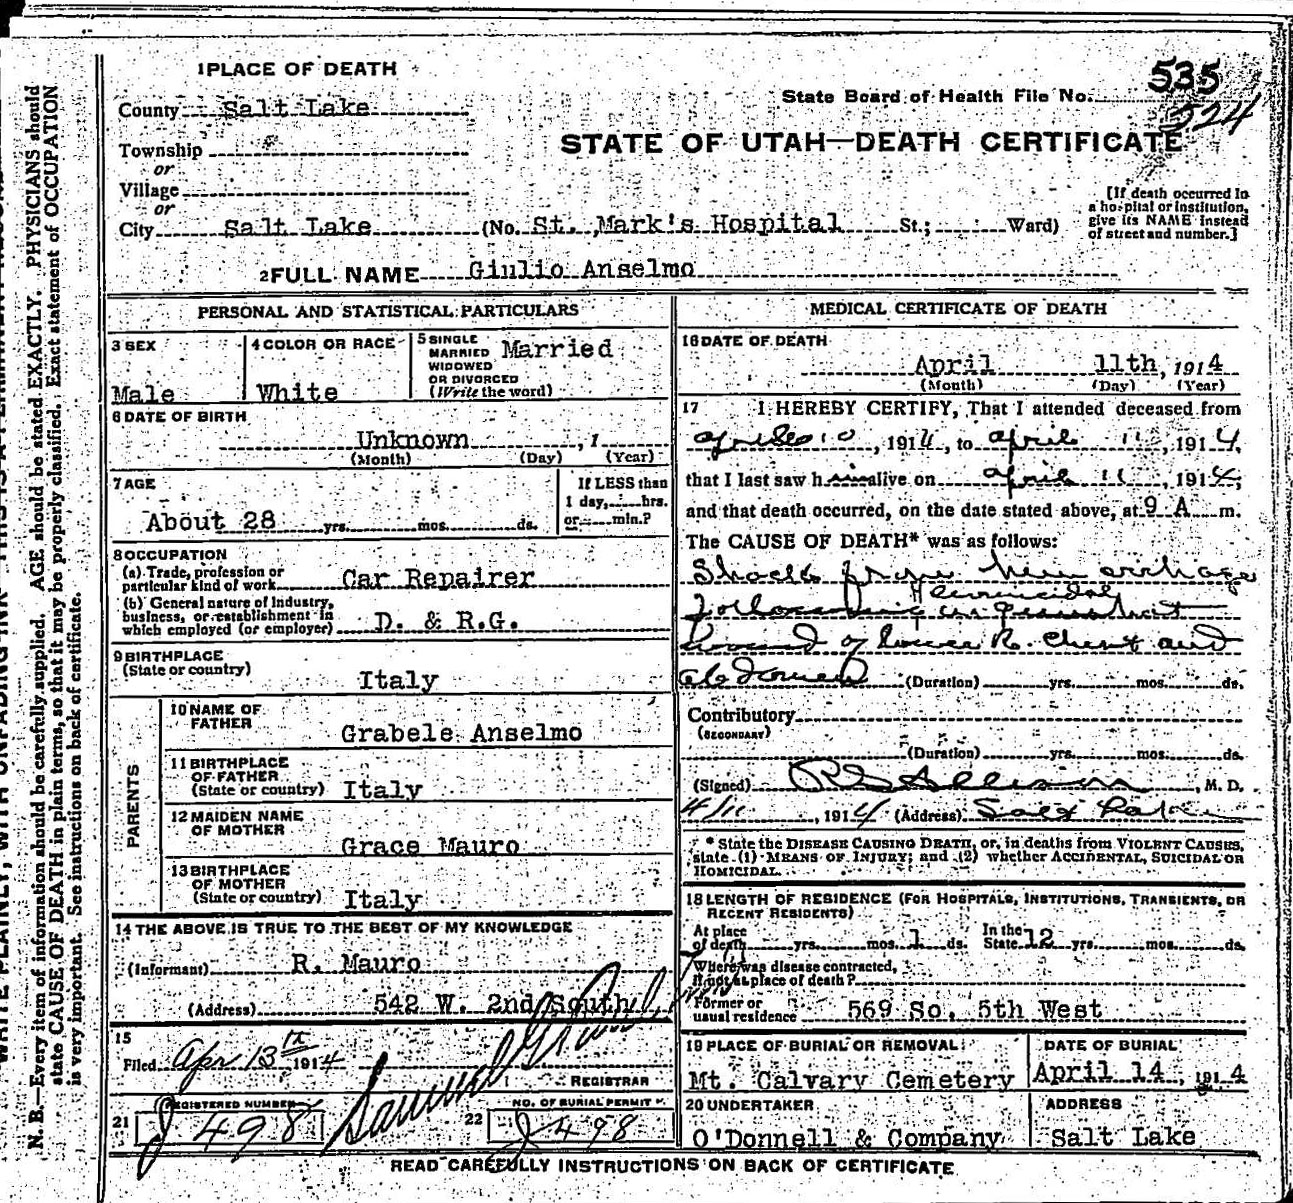 1 PLACE OF DEATH
County Salt Lake
Township
or
Village
or
City Salt Lake (No. St. Mark's Hospital St.; Ward)
State Board of Health File No. 535
524
STATE OF UTAH—DEATH CERTIFICATE
[If death occurred in
a hospital or institution,
give its NAME instead
of street and number.]
2 FULL NAME Giulio Anselmo
PERSONAL AND STATISTICAL PARTICULARS
3 SEX
Male
4 COLOR OR RACE
White
5 SINGLE
MARRIED
WIDOWED
OR DIVORCED
(Write the word)
Married
6 DATE OF BIRTH
Unknown , 1
(Month) (Day) (Year)
7 AGE
About 28 yrs. mos. ds.
If LESS than
1 day, hrs.
or min.?
8 OCCUPATION
(a) Trade, profession or
particular kind of work Car Repairer
(b) General nature of Industry,
business, or establishment in
which employed (or employer) D. & R.G.
9 BIRTHPLACE
(State or country) Italy
PARENTS
10 NAME OF
FATHER
Grabele Anselmo
11 BIRTHPLACE
OF FATHER
(State or country) Italy
12 MAIDEN NAME
OF MOTHER
Grace Mauro
13 BIRTHPLACE
OF MOTHER
(State or country) Italy
14 THE ABOVE IS TRUE TO THE BEST OF MY KNOWLEDGE
(Informant) R. Mauro
(Address) 542 W. 2nd South
15
Filed Apr 13th 1914
REGISTRAR
21 REGISTERED NUMBER
J 498
22 NO. OF BURIAL PERMIT
J 498
MEDICAL CERTIFICATE OF DEATH
16 DATE OF DEATH
April 11th, 1914
(Month) (Day) (Year)
17 I HEREBY CERTIFY, That I attended deceased from
April 10, 1914, to April 11, 1914,
that I last saw him alive on April 11, 1914,
and that death occurred, on the date stated above, at 9 A m.
The CAUSE OF DEATH* was as follows:
Shock from hemorrhage
Homicidal
Following gunshot
wound of lower R. chest and
abdomen (Duration) yrs. mos. ds.
Contributory
(SECONDARY)
(Duration) yrs. mos. ds.
(Signed) Allison, M. D.
4/11, 1914 (Address) Salt Lake
* State the DISEASE CAUSING DEATH, or, in deaths from VIOLENT CAUSES,
state (1) MEANS OF INJURY; and (2) whether ACCIDENTAL, SUICIDAL OR
HOMICIDAL.
18 LENGTH OF RESIDENCE (FOR HOSPITALS, INSTITUTIONS, TRANSIENTS, OR
RECENT RESIDENTS)
At place In the
of death yrs. mos. 1 ds. State 12 yrs. mos. ds.
Where was disease contracted,
if not at place of death?
Former or
usual residence 569 So. 5th West
19 PLACE OF BURIAL OR REMOVAL
Mt. Calvary Cemetery
DATE OF BURIAL
April 14, 1914
20 UNDERTAKER
O'Donnell & Company
ADDRESS
Salt Lake
READ CAREFULLY INSTRUCTIONS ON BACK OF CERTIFICATE
N. B.—Every item of information should be carefully supplied. AGE should be stated EXACTLY. PHYSICIANS should
state CAUSE OF DEATH in plain terms, so that it may be properly classified. Exact statement of OCCUPATION
is very important. See instructions on back of certificate.